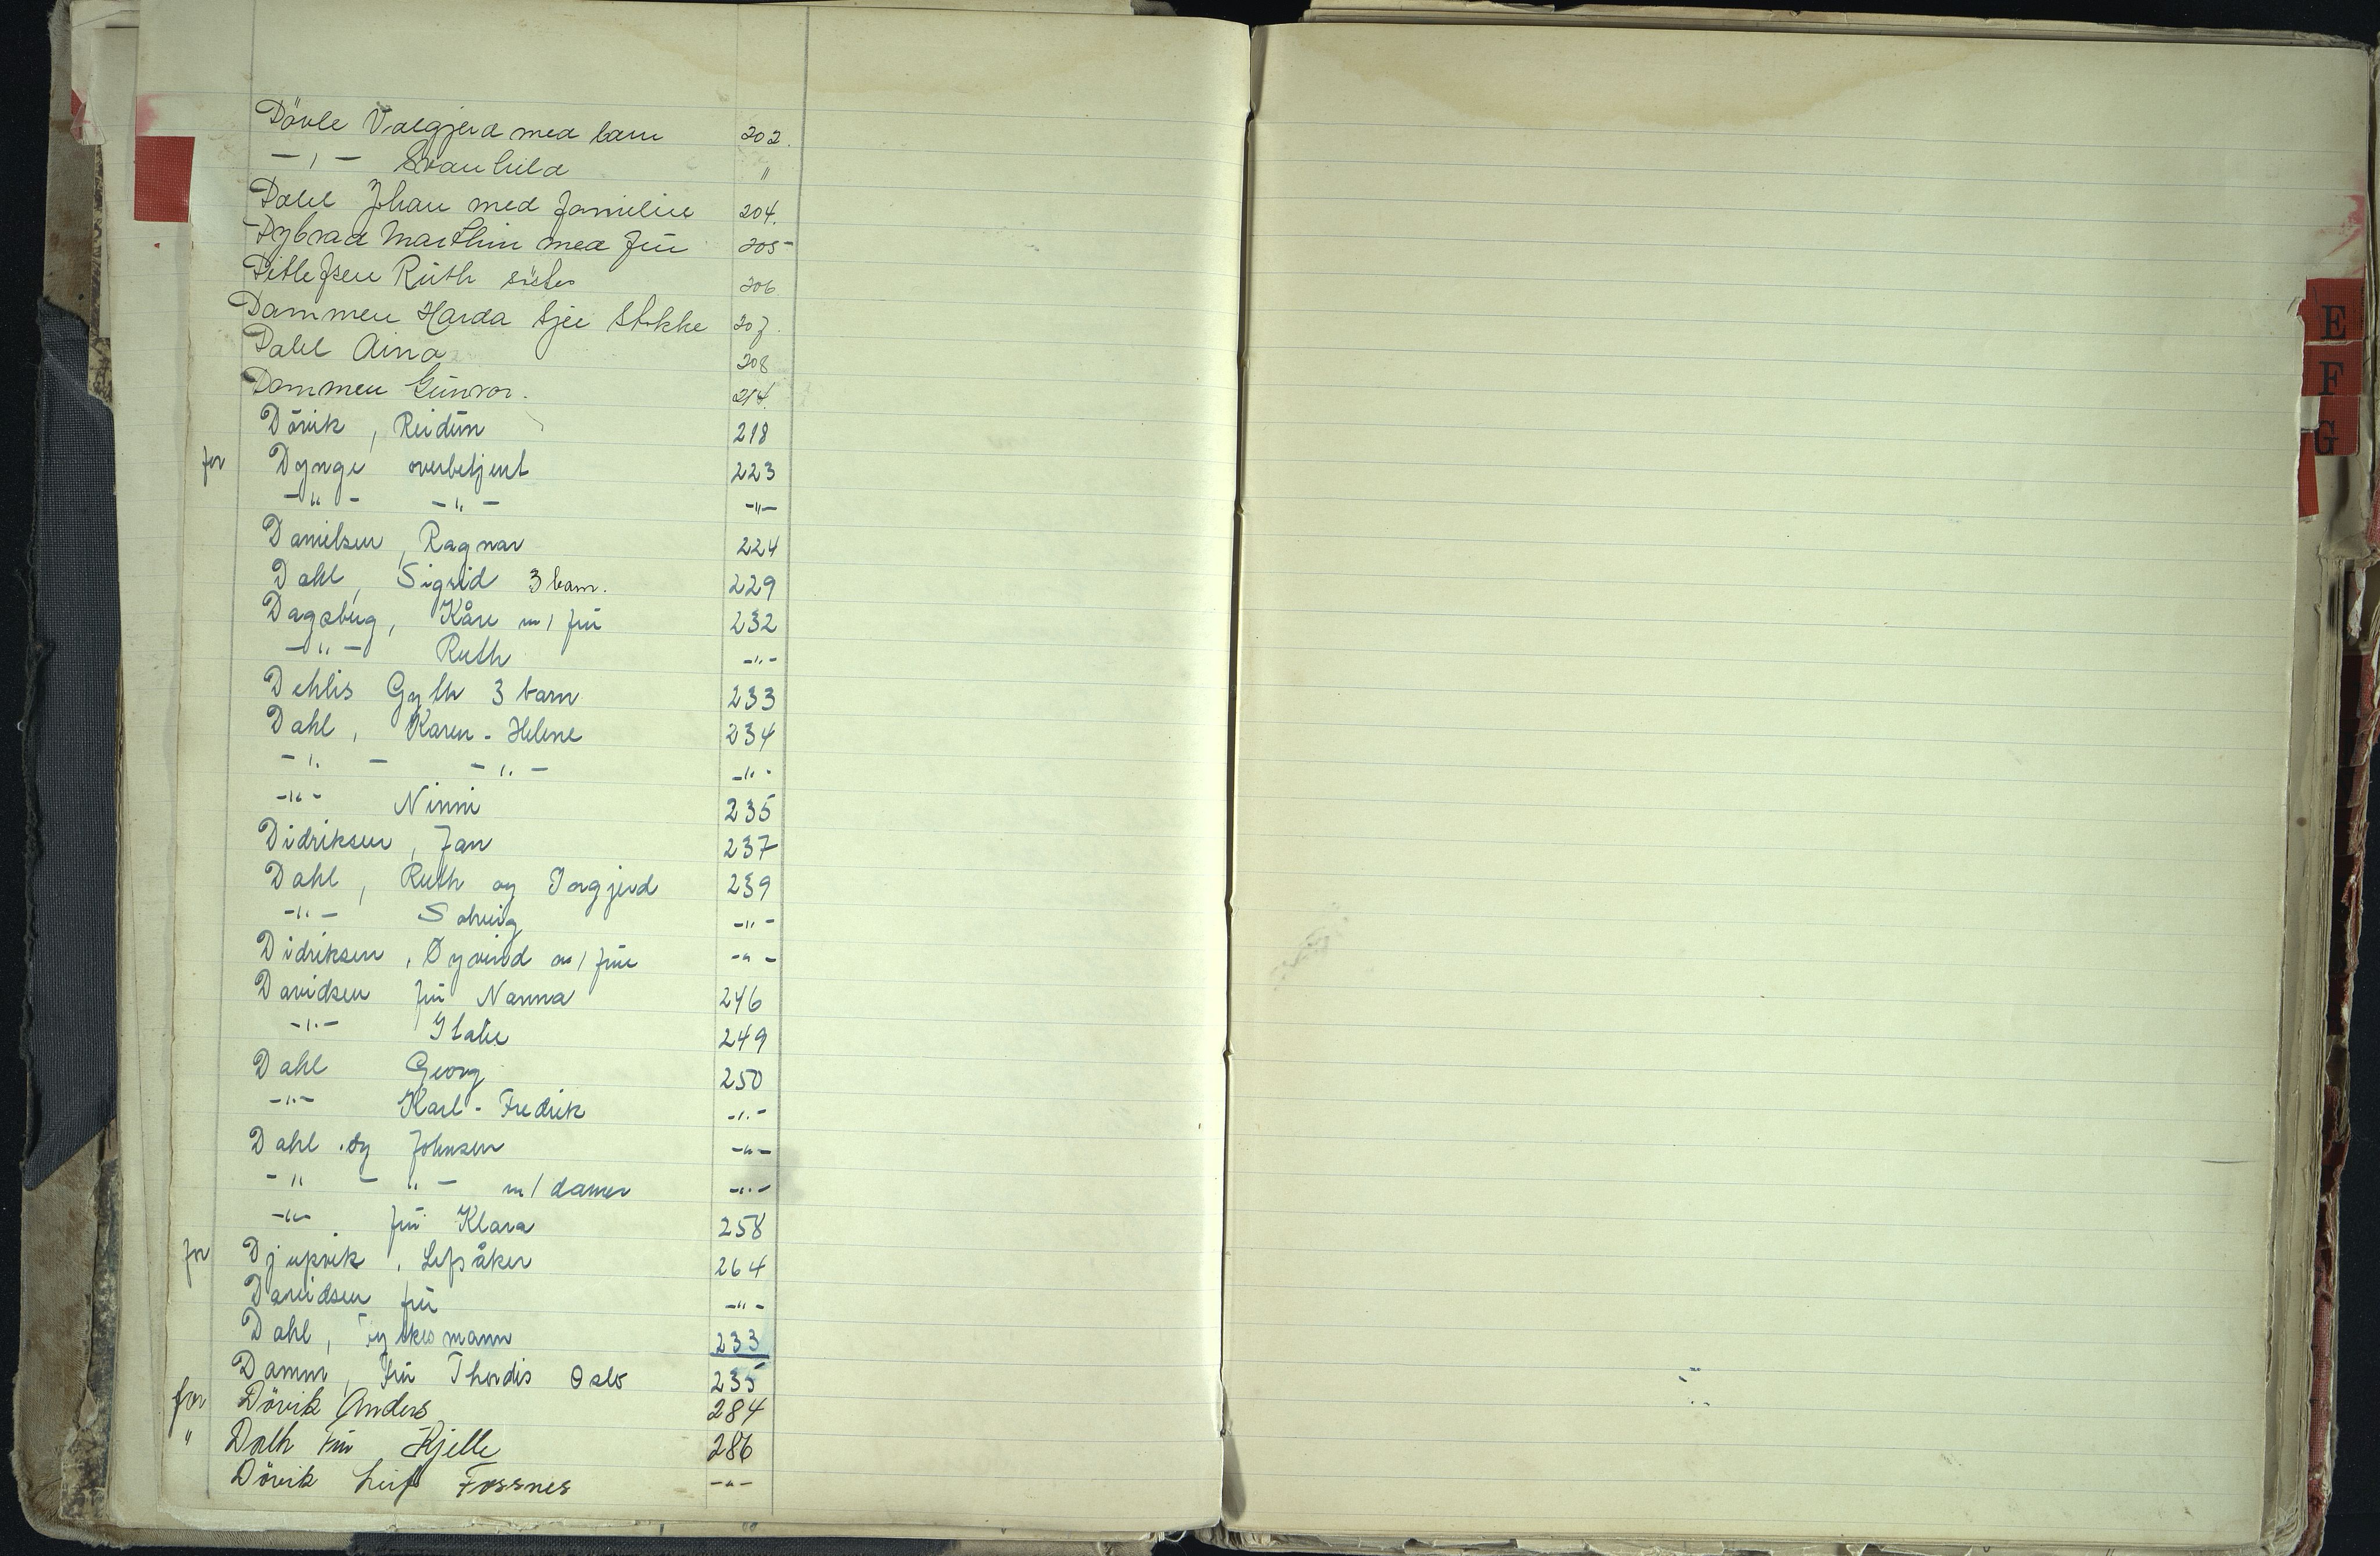 Dövle Valgjerd med barn 202.
- " - Svanhild "
Dahl Johan med familie 204.
Dybvad Marthin med frü 205
Ditlefsen Rüth söster 206
Dammen Harda Stokke 207.
Dahl Aina 208
Dammen Günvor. 214.
Dövik, Reidün 218
for Dynge overbetjent 223
- " - - " - - " -
Danielsen, Ragnar 224
Dahl, Sigrid 3 barn. 229
Dagsberg, Kåre m/ frü 232
- " - Ruth - " -
Dehlis Gyth 3 barn 233
Dahl, Karen - Helene 234
- " - - " - - " -
- " - Ninni 235
Didriksen, Jan 237
Dahl, Ruth og Ingjerd 239
- " - Solveig - " -
Didriksen, Öyvind m/ frü - " -
Davidsen frü Nanna 246
- " - 249
Dahl Georg 250
- " - Karl - Fredrik - " -
Dahl og Johnsen - " -
- " - " - m/ damer - " -
- " - frü Klara 258
for Djupvik, Lefsåker 264
Davidsen frü - " -
Dahl, Fylkesmann 233
Damm, Frü Thordis Oslo 235
for Dövik Anders 284
" Dalh Frü Kjelle 286
Dövik Leif Fossnes - " -
E
F
G